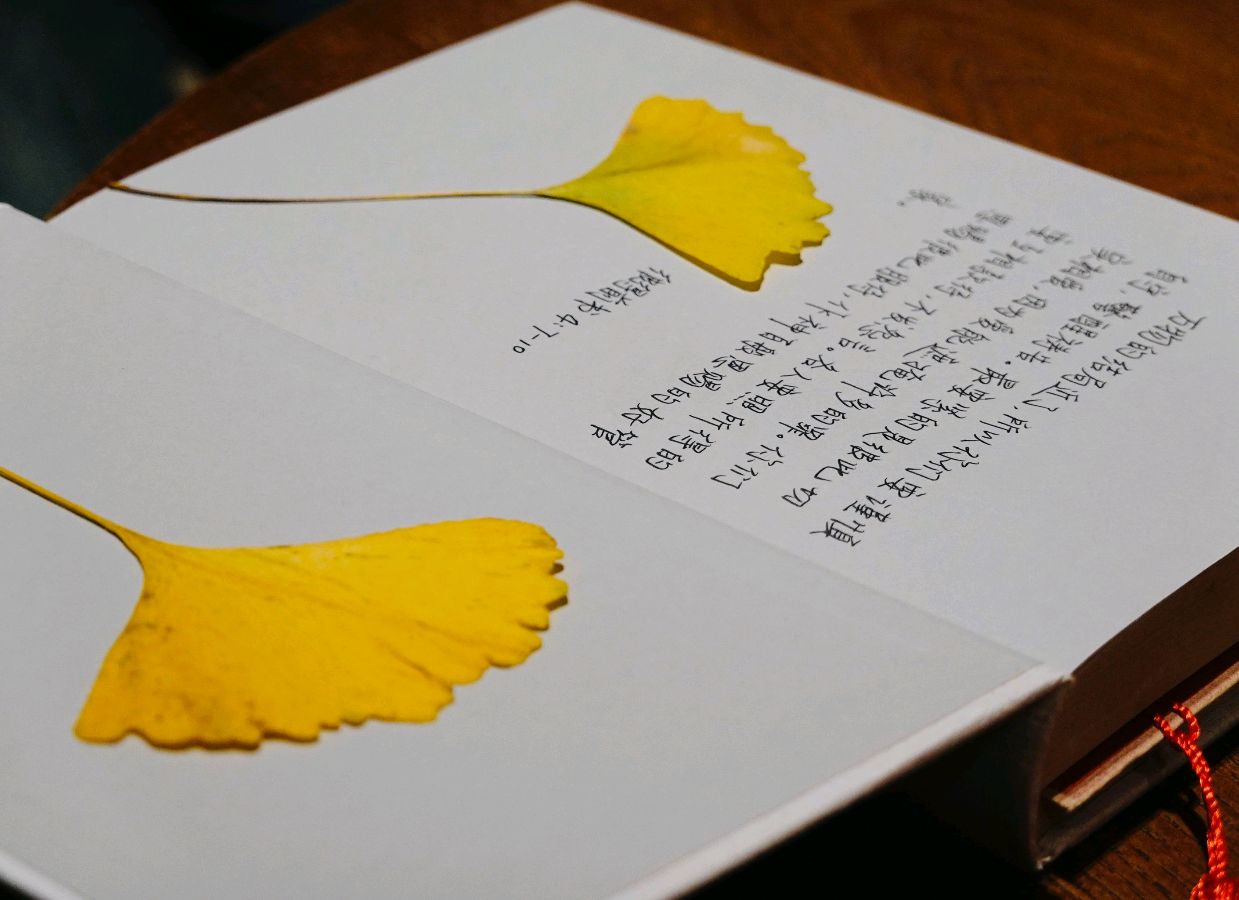 万物的结局近了，所以你们要谨慎
自守，警醒祷告。最要紧的是彼此切
实相爱，因为爱能遮掩许多的罪。你们
要互相款待，不发怨言。各人要照所得的
恩赐彼此服侍，作神百般恩赐的好管
家。
彼得前书 4:7-10